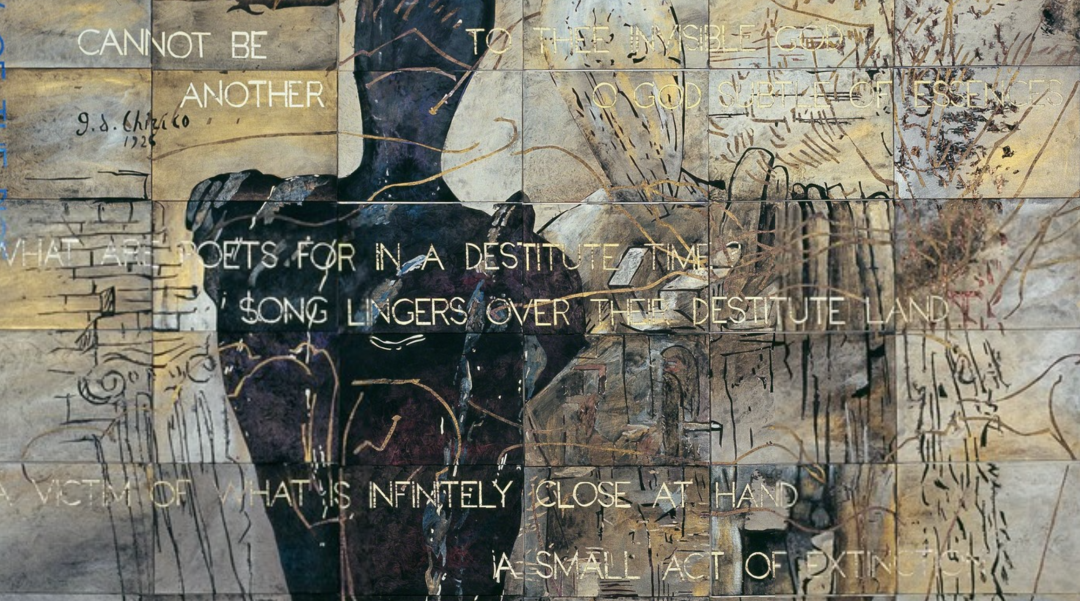 CANNOT BE
TO THEE INVISIBLE GOD
ANOTHER
O GOD SUBTLE OF ESSENCES
g. d. Chirico
1926
WHAT ARE POETS FOR IN A DESTITUTE TIME
SONG LINGERS OVER THEIR DESTITUTE LAND
A VICTIM OF WHAT IS INFINITELY CLOSE AT HAND
A SMALL ACT OF EXTINCTION